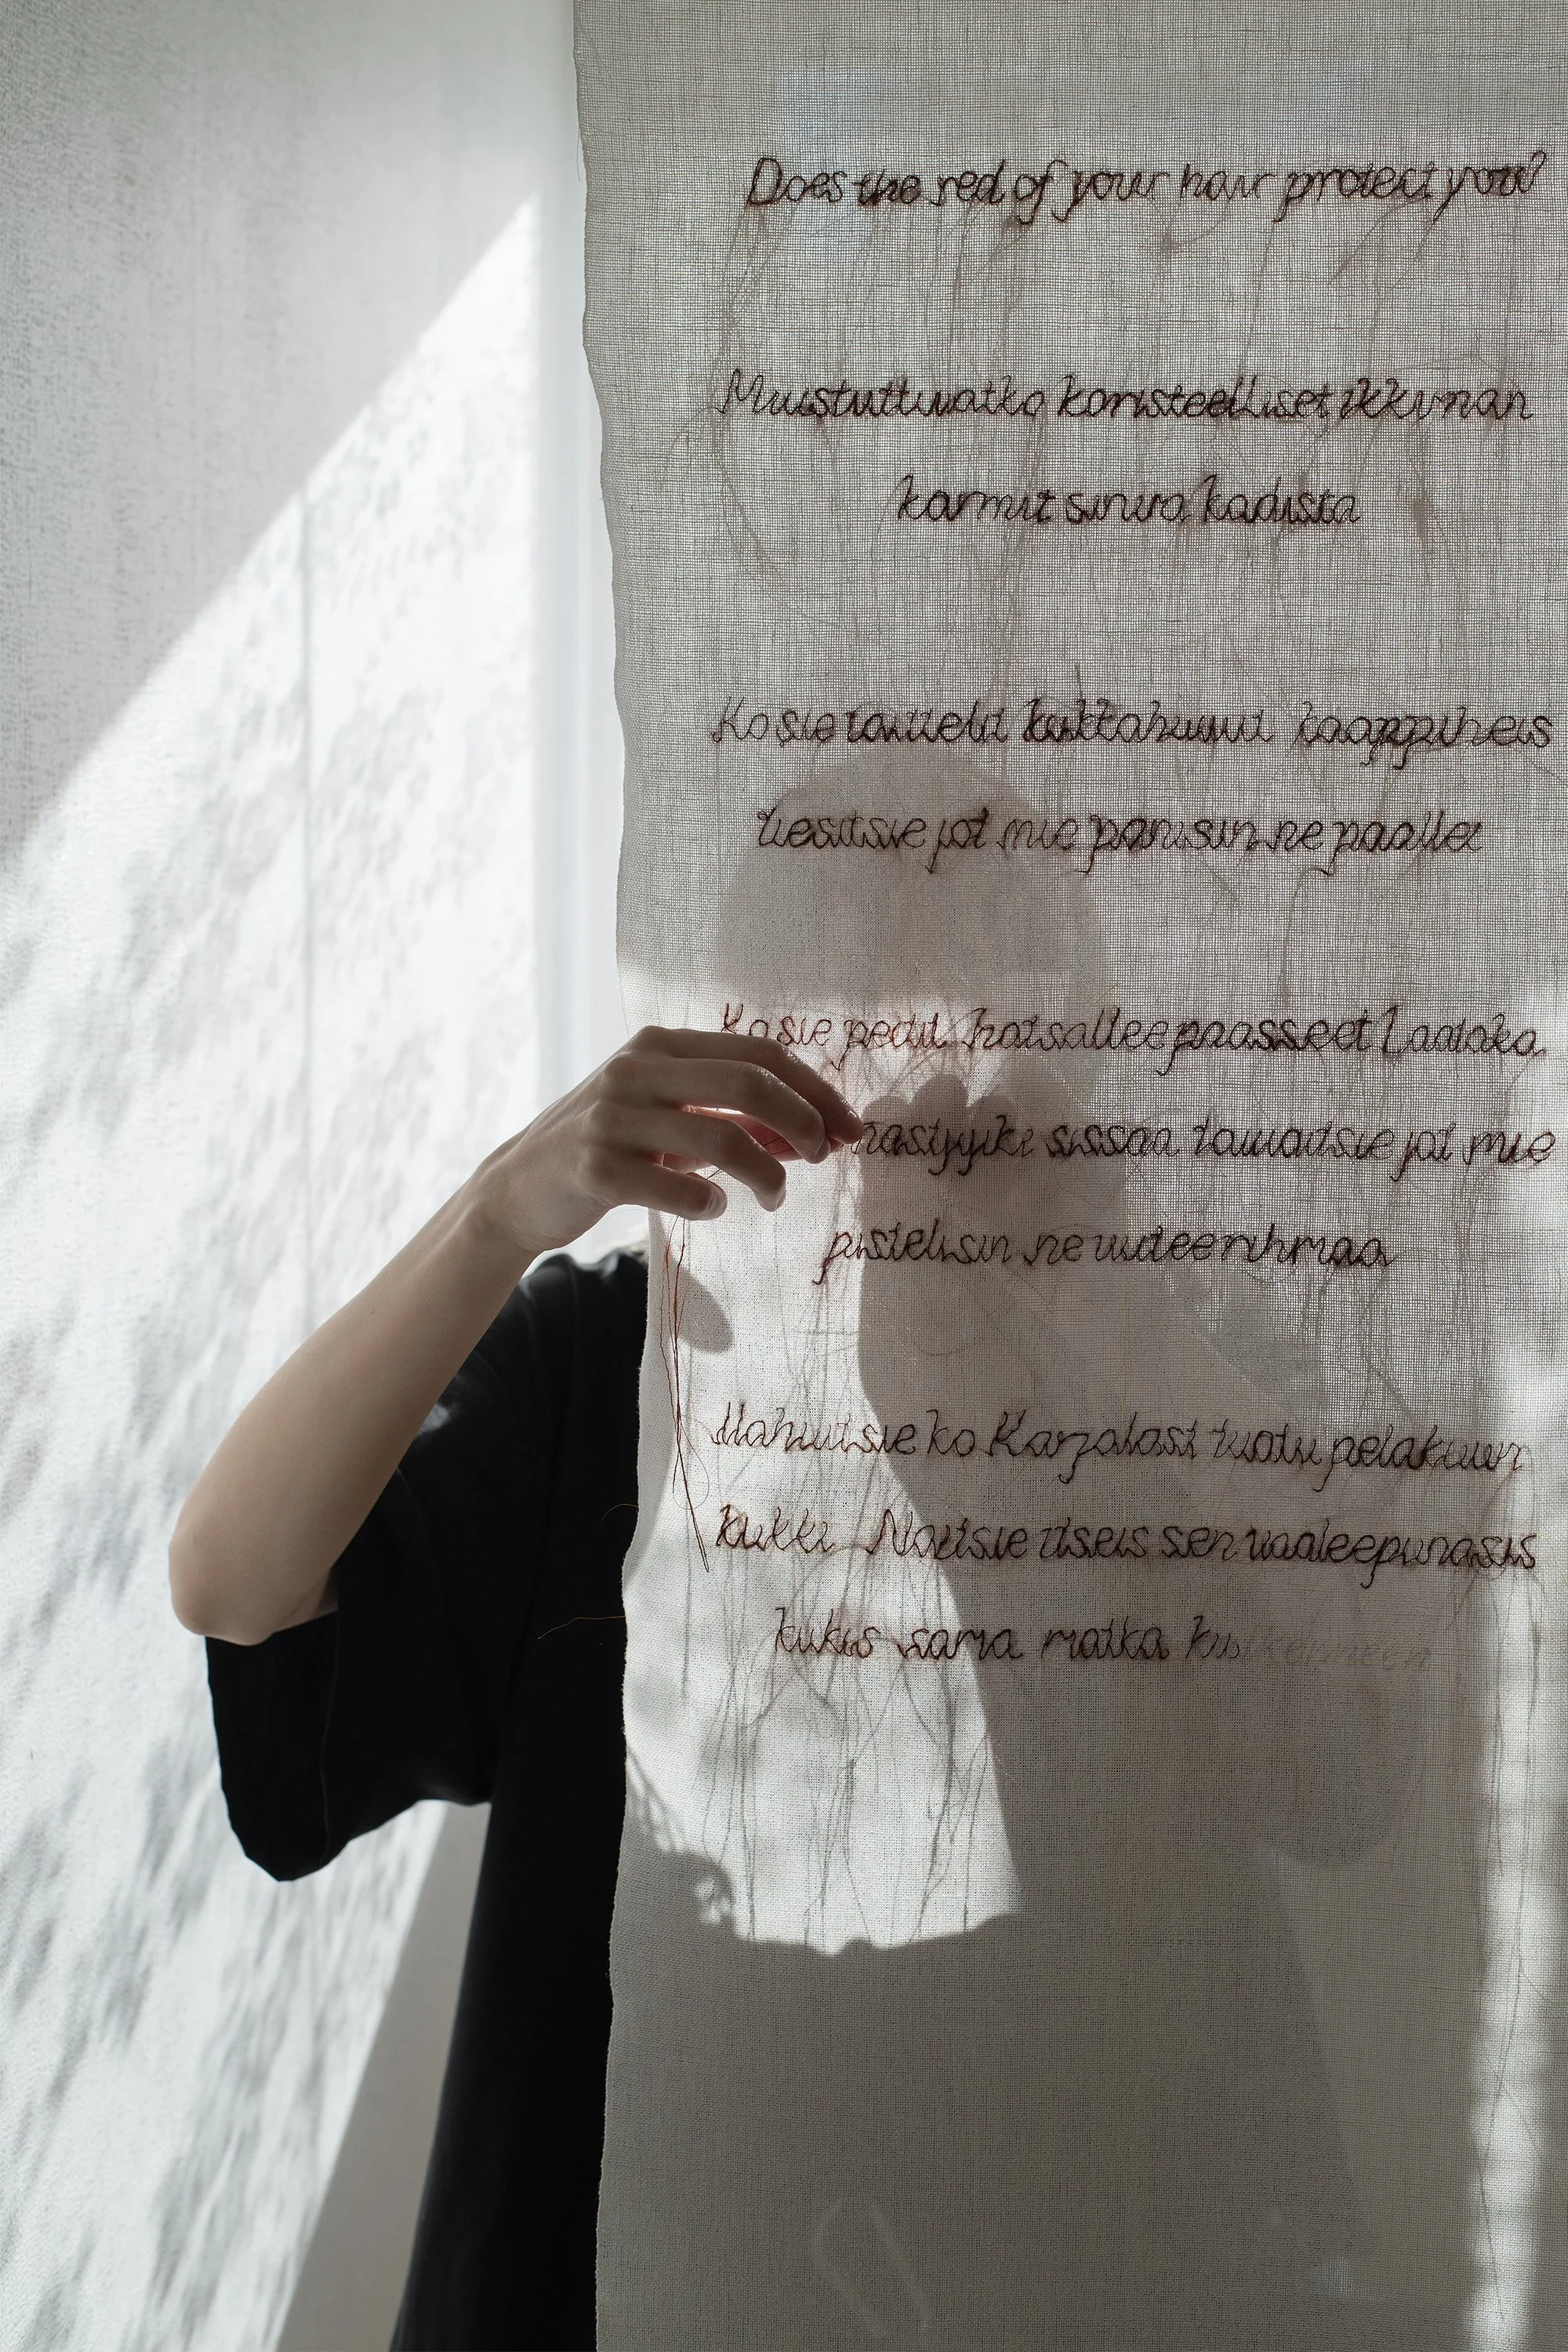 Does the red of your hair protect you?
Muistuttavatko koristeelliset ikkunan
karmit sinua kodista
Ko sie taittelit kukkahuivii kaappiheis
tiesitsie jot mie panisin ne päälle
Ko sie peitit hatsallee paasseet Laatoka
sissää jot mie
pistelisin ne uuteen rihmaa
Ko Karjalast tuotu pelakuun
kukki Näitsie itseis sen vaaleepunasis
kukis sama matka kulkeneen